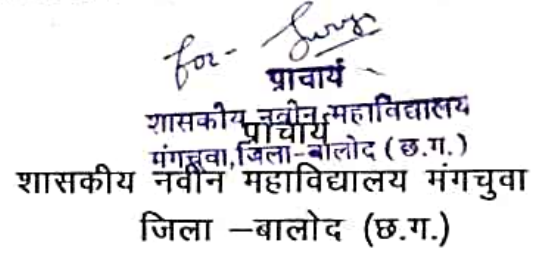 for-
प्राचार्य
शासकीय नवीन महाविद्यालय
प्राचार्य
मंगचुवा,जिला-बालोद (छ.ग.)
शासकीय नवीन महाविद्यालय मंगचुवा
जिला –बालोद (छ.ग.)